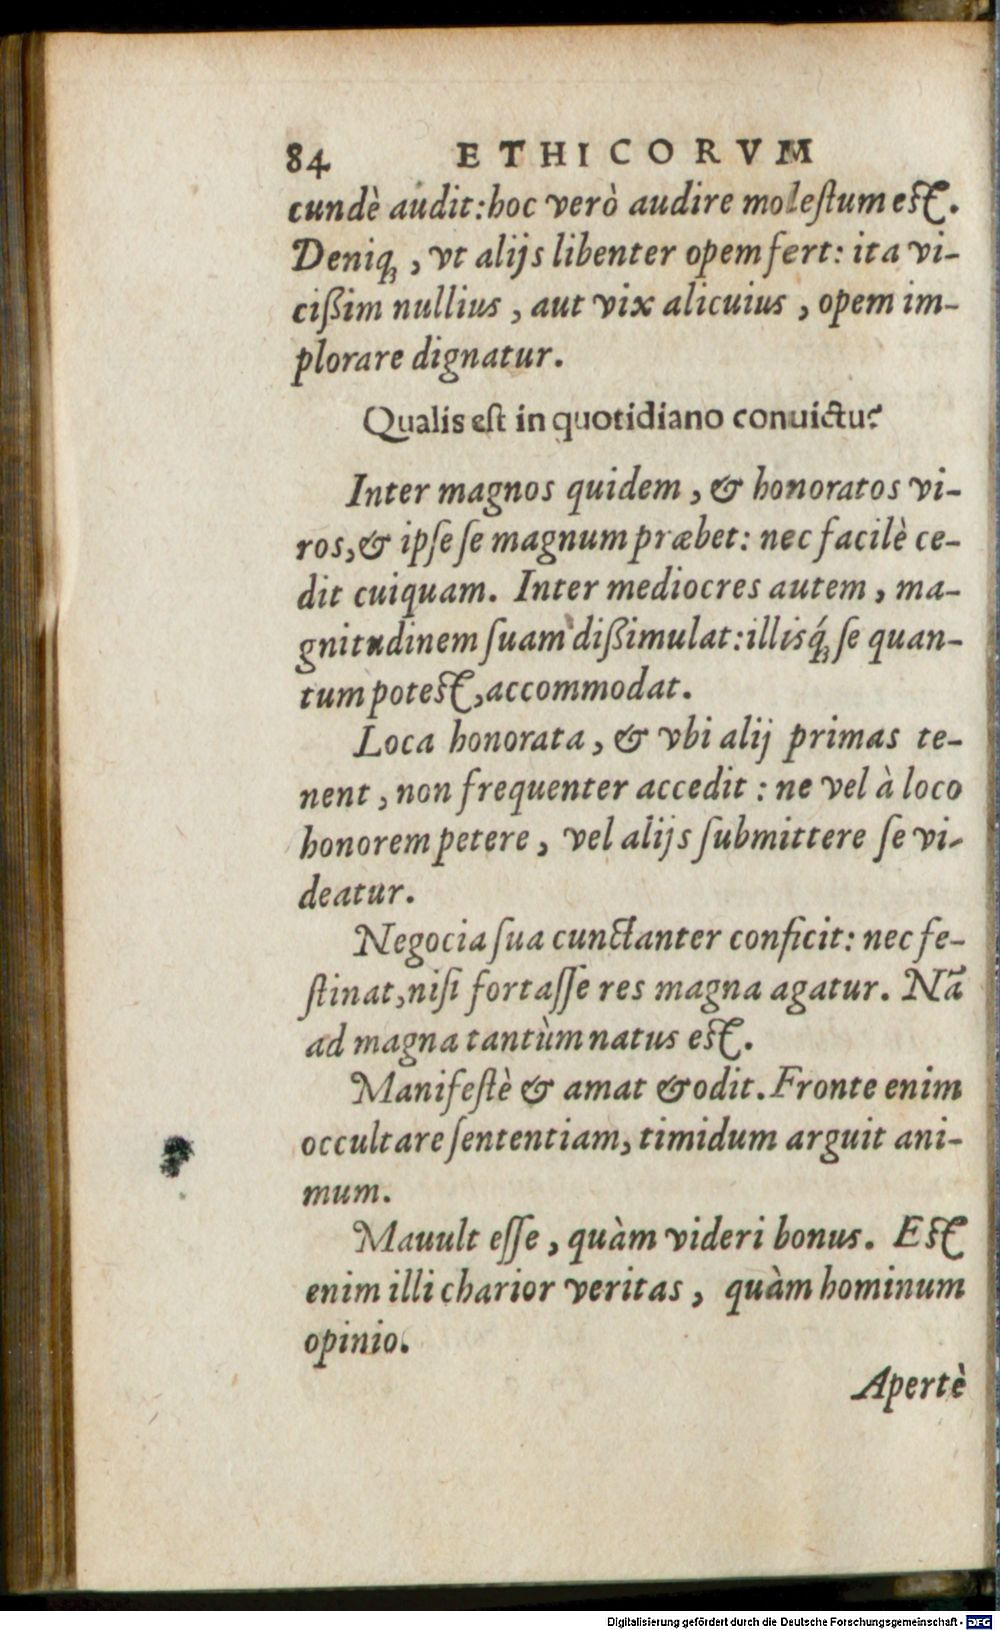 84 ETHICORVM
cundè audit: hoc verò audire molestum est.
Deniq́ꝫ, vt alijs libenter opem fert: ita vi-
cißim nullius, aut vix alicuius, opem im-
plorare dignatur.
Qualis est in quotidiano conuictu?
Inter magnos quidem, & honoratos vi-
ros, & ipse se magnum præbet: nec facilè ce-
dit cuiquam. Inter mediocres autem, ma-
gnitudinem suam dißimulat: illisq́ꝫ se quan-
tum potest, accommodat.
Loca honorata, & vbi alij primas te-
nent, non frequenter accedit: ne vel à loco
honorem petere, vel alijs submittere se vi-
deatur.
Negocia sua cunctanter conficit: nec fe-
stinat, nisi fortasse res magna agatur. Nã
ad magna tantùm natus est.
Manifestè & amat & odit. Fronte enim
occultare sententiam, timidum arguit ani-
mum.
Mauult esse, quàm videri bonus. Est
enim illi charior veritas, quàm hominum
opinio.
Apertè
Digitalisierung gefördert durch die Deutsche Forschungsgemeinschaft - DFG